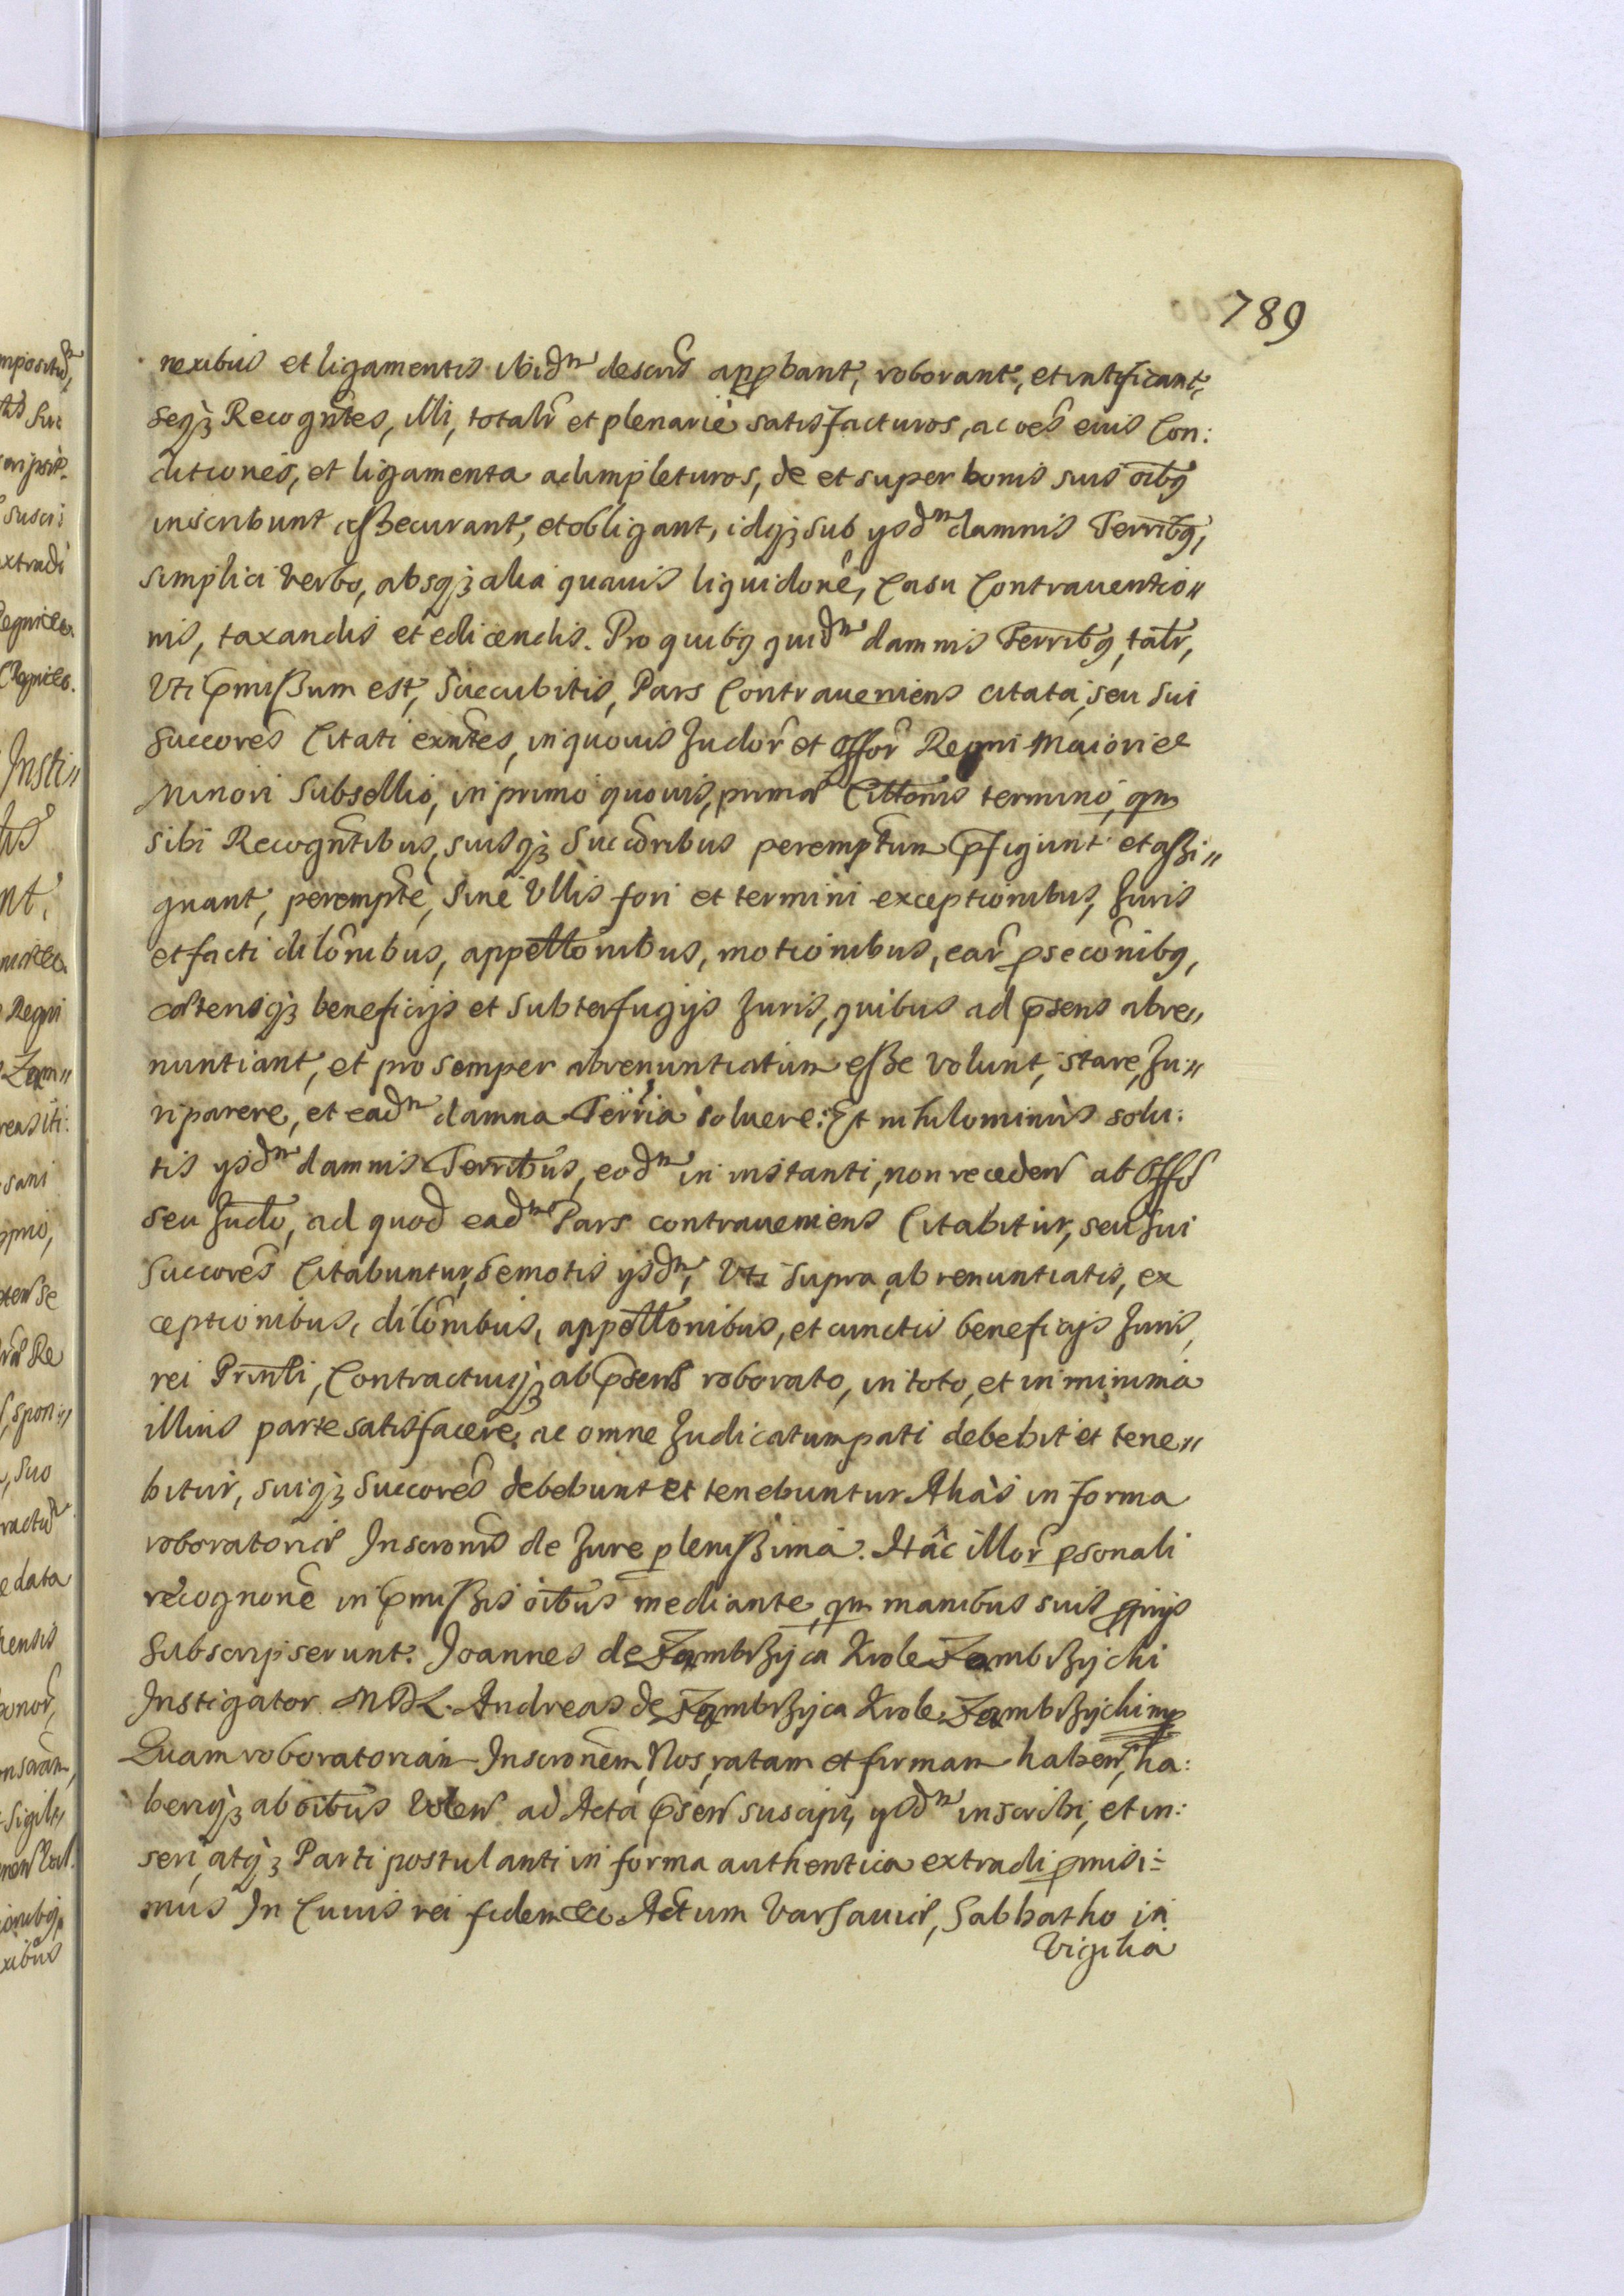 789
nexibus et ligamentis ibidm descris appbant, roborant, et ratificant,
seqȝ Recogntes, illi, totalr et plenarie satisfacturos, ac oes eius Con:
ditiones, et ligamenta adimpleturos, de et super bonis suis oibg
inscribunt assecurant, et obligant, idqȝ sub ysdm damnis Terribg,
simplici verbo, absqȝ alia quavis liquidone, Casu Contrauentio〃
nis, taxandis et edicendis. Pro quibg quidm damnis Terribg, talr,
Vti pmissum est, Succubitis, Pars Contraueniens citata, seu sui
Succores Citati exntes, in quouis Judor et Offor Regni Maiori et
Minori Subsellio, in primo quouis, primae Citto͠nis termino, qm
sibi Recogntibus, suisqȝ Succoribus peremptum pfigunt et assi〃
gnant, perempte, Sine Vllis fori et termini exceptionibus, Juris
et facti dilonibus, appellonibus, motionibus, ear pseconibg,
caeterisqȝ beneficijs et subterfugijs Juris, quibus ad psens abre〃
nuntiant, et pro semper abrenuntiatum esse volunt, stare, Ju〃
ri parere, et eadm damna Terria soluere: Et nihilominus solu:
tis ysdm damnis Terribus, eodm in instanti, non receden ab Offo
seu Judo, ad quod eadm Pars contraueniens Citabitur, seu sui
Succores Citabuntur, semotis ysdm, Vti supra, abrenuntiatis, ex
ceptionibus, dilonibus, appellonibus, et cunctis beneficijs Juris,
rei Prinli, Contractuiqȝ ab psens roborato, in toto, et in minima
illius parte satisfacere, ac omne Judicatum pati debebit et tene〃
bitur, suiqȝ Succores debebunt et tenebuntur Alias in forma
roboratoriae Inscronis de Jure plenissima. Hac illor psonali
recognone in pmissis oibus mediante, qm manibus suis pprijs
Subscripserunt. Joannes de Zambrzyca Krole Zambrzychi
Instigator MDL. Andreas de Zambrzyca Krole Zambrzychi mp
Quam roboratoriam Inscronem, Nos, ratam et firmam haben, ha:
beriqȝ ab oibus Volen ad Acta psen suscipi, ysdm inscribi, et in:
seri, atqȝ Parti postulanti in forma authentica extradi pmisi:
mus In Cuius rei fidem &c. Actum Varsauiae, Sabbatho in
Vigilia